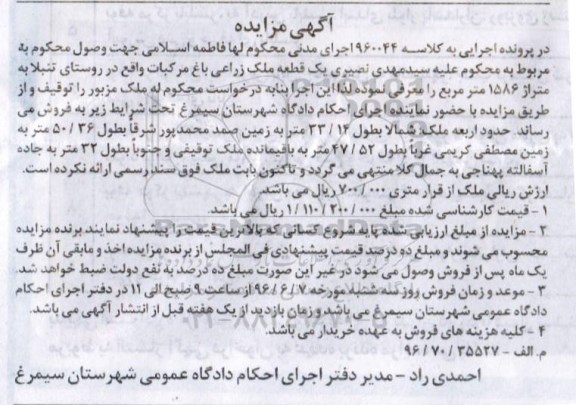 آگهی مزایده
در پرونده اجرایی به کلاسه ۹۶۰۰۴۴اجرای مدنی محکوم لها فاطمه اسلامی جهت وصول محکوم به
مربوط به محکوم علیه سیدمهدی نصیری یک قطعه ملک زراعی باغ مرکبات واقع در روستای تنبلا به
متراژ ۱۵۸۶ متر مربع را معرفی نموده لذا این اجرا بنابه درخواست محکوم له ملک مزبور را توقیف و از
طریق مزایده با حضور نماینده اجرای احکام دادگاه شهرستان سیمرغ تحت شرایط زیر به فروش می
رساند. حدود اربعه ملک: شمالا بطول ۱۴ / ۳۳ متر به زمین صمد محمدپور شرقاً بطول ۳۶ / ۵۰ متر به
زمین مصطفی کریمی غرباً بطول ۵۲ / ۴۷ متر به باقیمانده ملک توقیفی و جنوباً بطول ۳۲ متر به جاده
آسفالته پهناجی به جمال کلا منتهی می گردد و تاکنون بابت ملک فوق سند رسمی ارائه نکرده است.
ارزش ریالی ملک از قرار متری ۷۰۰/۰۰۰ ریال می باشد.
۱ - قیمت کارشناسی شده مبلغ ۱/۱۱۰/۲۰۰/۰۰۰ ریال می باشد.
۲ - مزایده از مبلغ ارزیابی شده پایه شروع کسانی که بالاترین قیمت را پیشنهاد نمایند برنده مزایده
محسوب می شوند و مبلغ ده درصد قیمت پیشنهادی فی المجلس از برنده مزایده اخذ و مابقی آن ظرف
یک ماه پس از فروش وصول می شود در غیر این صورت مبلغ ده درصد به نفع دولت ضبط خواهد شد.
۳ - موعد و زمان فروش روز سه شنبه مورخه ۷ / ۶ / ۹۶ از ساعت ۹ صبح الی ۱۲ در دفتر اجرای احکام
دادگاه عمومی شهرستان سیمرغ می باشد و زمان بازدید از یک هفته قبل از انتشار آگهی می باشد.
۴ - کلیه هزینه های فروش به عهده خریدار می باشد.
م. الف - ۳۵۵۲۷ / ۷۰ / ۹۶
احمدی راد - مدیر دفتر اجرای احکام دادگاه عمومی شهرستان سیمرغ